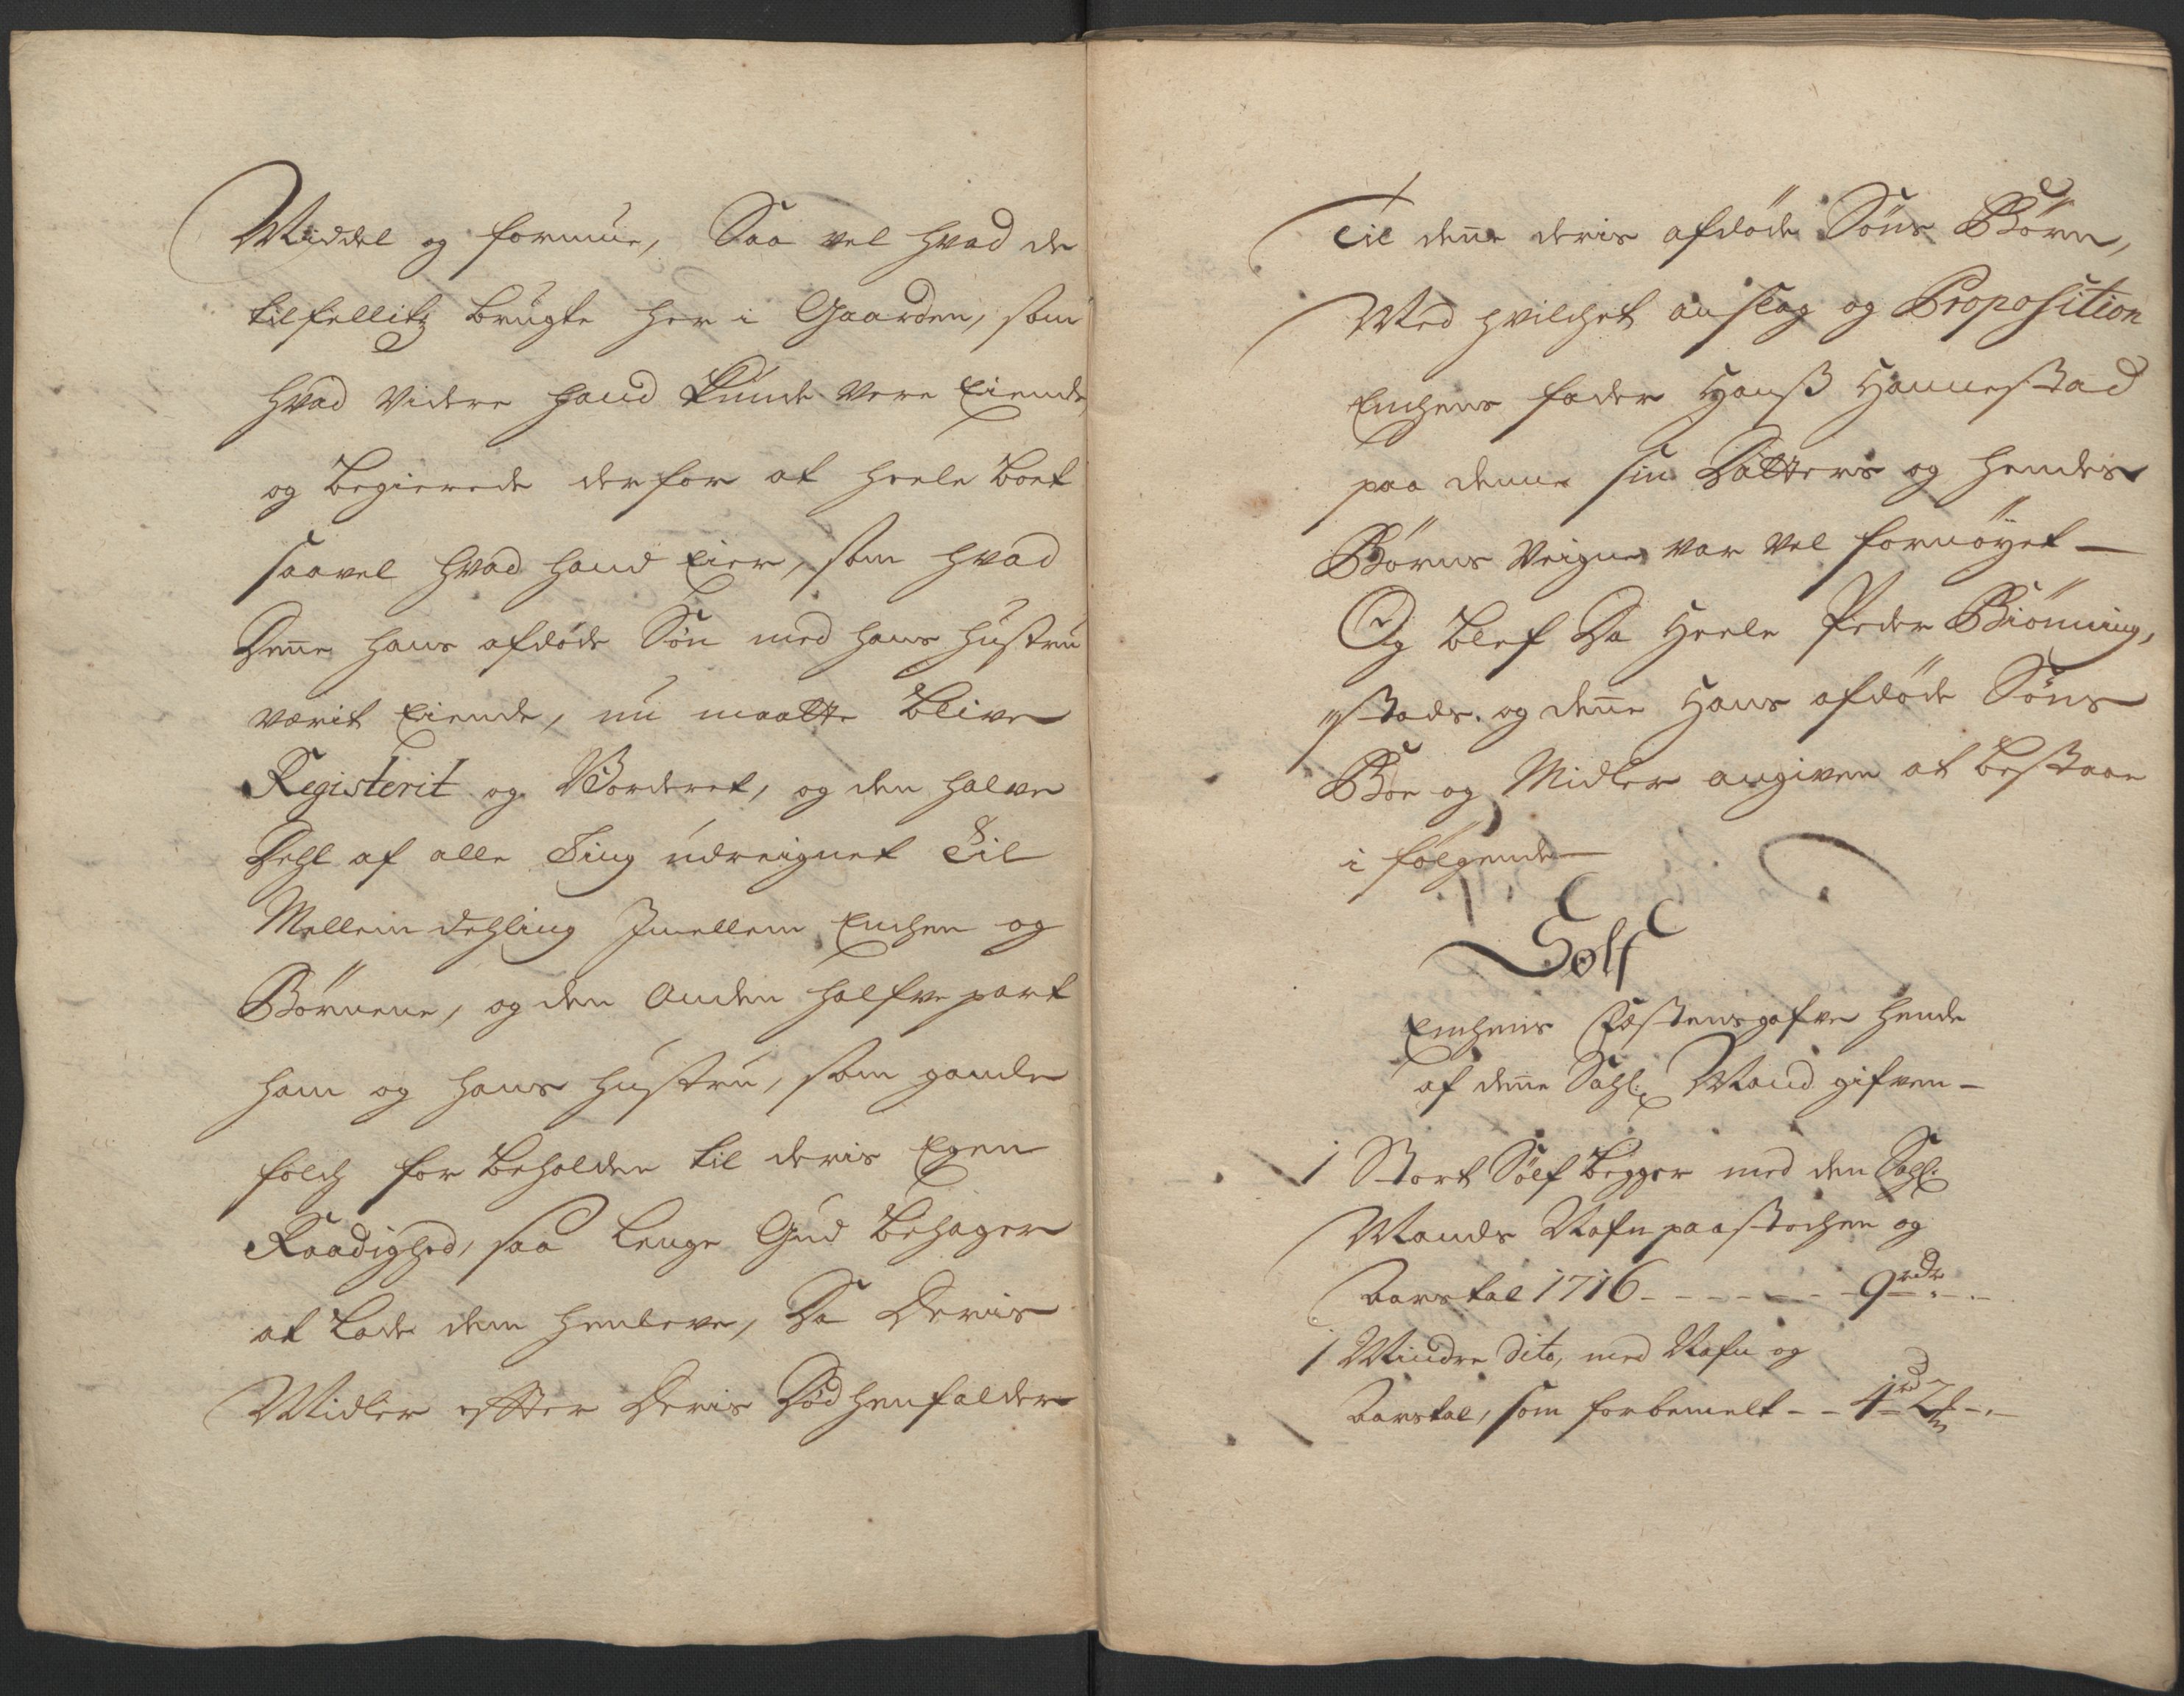 Middel og formue, Saa vel hvad de
tilfellitz brugte her i Gaarden, som
hvad videre hand kunde vere Eiende
og begierede derfor at heele boet
saavel hvad hand Eier, som hvad
Dene hans afdøde Søn med hans hustru
verit Eiende, nu maatte blive
Registerit og Vorderet, og den halve
Dehl af alle Ting udreignet Til
Mellem dehling Imellem Enchen og
Børnene, og den Anden halfve part
ham og hans hustru, som gamle
folch for beholden til deris Egen
Raadighed, saa lenge Gud behager
at lade dem henleve, Da Deris
Midler effter Deris Død henfalder
Til dene deris afdøde Søns Børn,
Med hvilchet anslag og Proposition
Enchens fader Hanß Hannestad
paa denne sin Dátters og hendes
Børns Veigne var vel fornøyet —
Og blef Da Heele Peder Biønning,
stads og dene Hans afdøde Søns
Boe og Midler angiven at bestaae
i følgende —
Sølf
Enchens Festensgafve hende
af dene Sahl: Mand gifven –
1 Stort Sølf begger med den Sahl:
Mands Nafn paa stochen og
Aarstal 1716 - - - - - - 9 rdr - . -
1 Mindre dito, med Nafn og
Aarstal, som forbemelt - - 4 rd 2